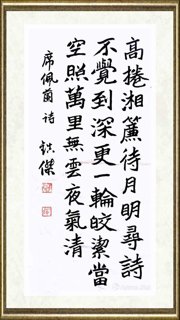 高捲湘簾待月明尋詩
不覺到深更一輪皎潔當
空照萬里無雲夜氣清
席佩蘭詩 鎮傑